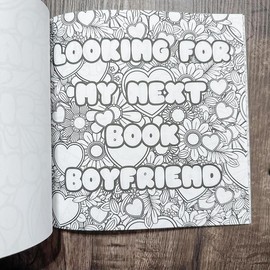 LOOKING FOR
MY NEXT
BOOK
BOYFRIEND